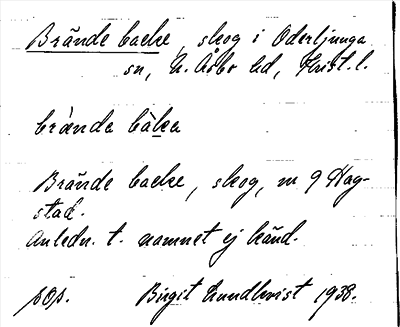 Brände backe, skog i Oderljunga
sn, N. Åsbo hd, Krist. l.
brànde bàka
Brände backe, skog, m 9 Hag-
stad.
Anledn. t. namnet ej känd.
pop. Birgit Lundkvist 1938.